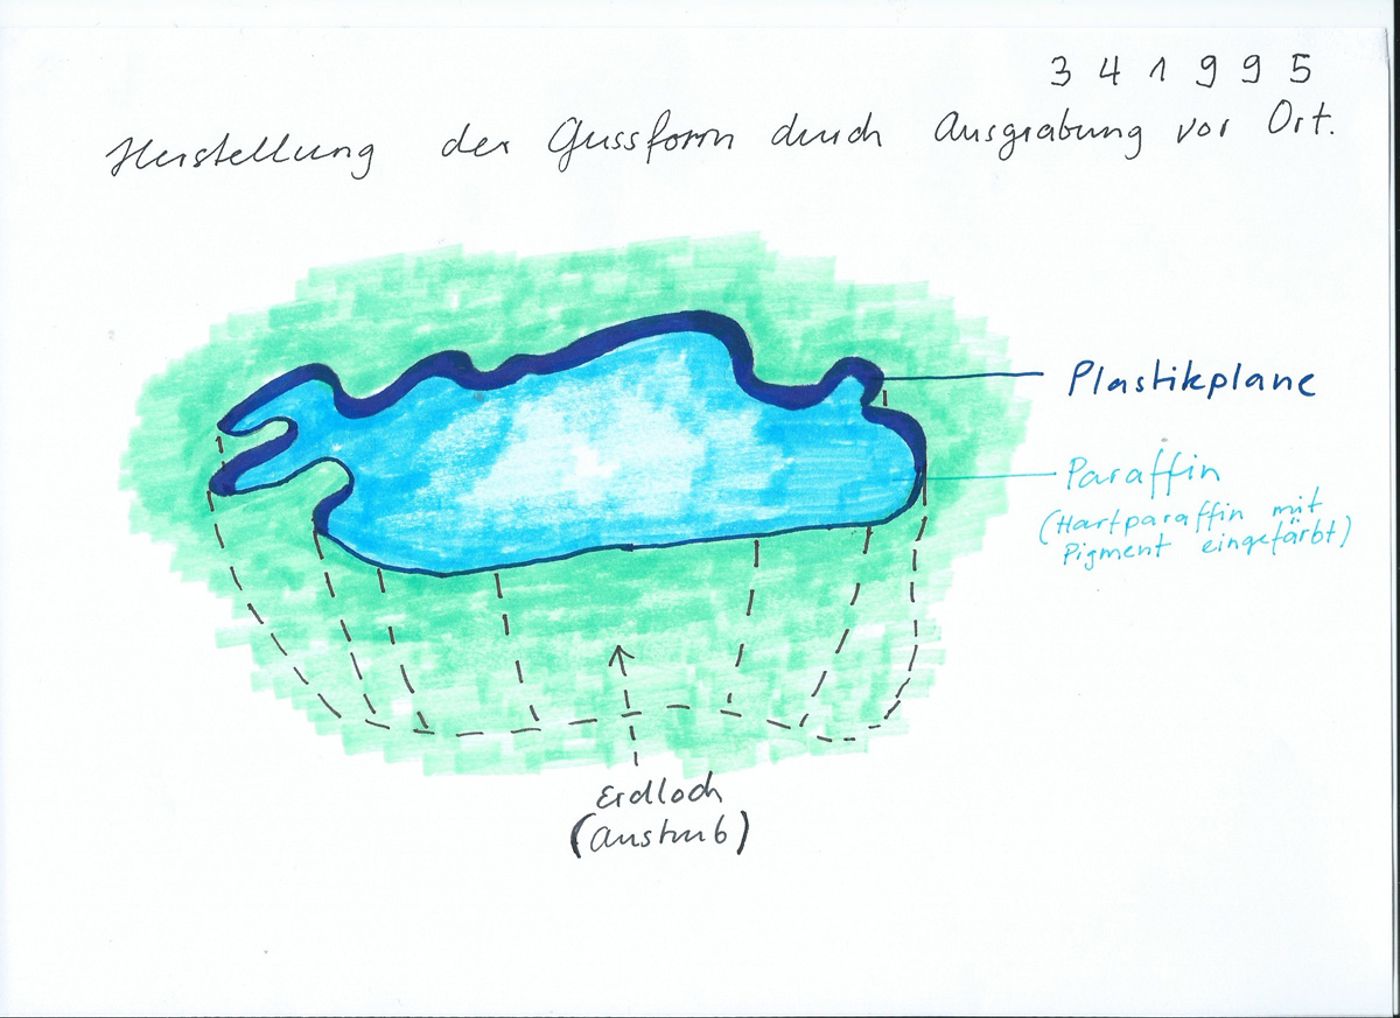 3 4 1 9 9 5
Herstellung der Gussform durch Ausgrabung vor Ort.
Plastikplane
Paraffin
(Hartparaffin mit
Pigment eingefärbt)
Erdloch
(Aushub)